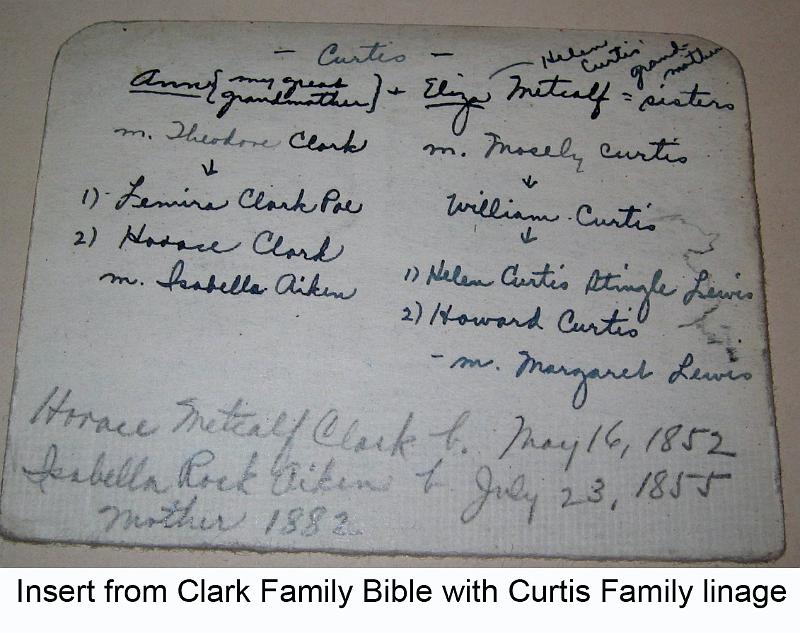 - Curtis -
Helen Curtis' grandmother
Ann {my great grandmother} + Eliza Metcalf = sisters
m. Theodore Clark
m. Mosely Curtis
↓
↓
1) Lemira Clark Poe
William Curtis
2) Horace Clark
↓
m. Isabella Aiken
1) Helen Curtis Stingle Lewis
2) Howard Curtis
- m. Margaret Lewis
Horace Metcalf Clark b. May 16, 1852
Isabella Rock Aiken b July 23, 1855
Mother 1882
Insert from Clark Family Bible with Curtis Family linage